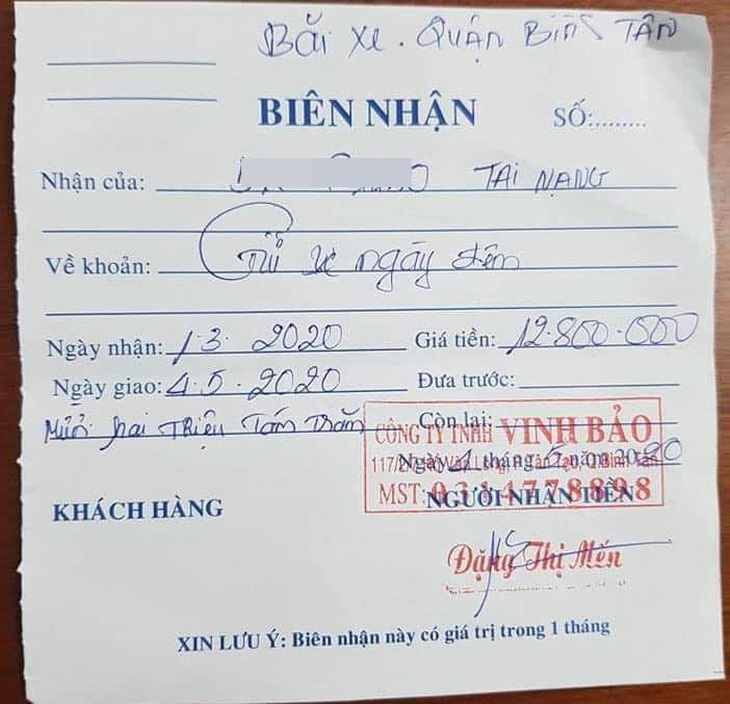 Bãi xe. Quận Bình Tân
BIÊN NHẬN
SỐ:.........
Nhận của: TAI NANG
Về khoản: Giữ xe ngày đêm
Ngày nhận: 1.3. 2020 Giá tiền: 12.800.000
Ngày giao: 4.5.2020 Đưa trước:
Mười hai Triệu Tám Trăm Còn lại:
CÔNG TY TNHH VINH BẢO
Ngày 4 tháng 5 năm 2020
117/2
MST:
NGƯỜI NHẬN TIỀN
KHÁCH HÀNG
Đặng Thị Mến
XIN LƯU Ý: Biên nhận này có giá trị trong 1 tháng